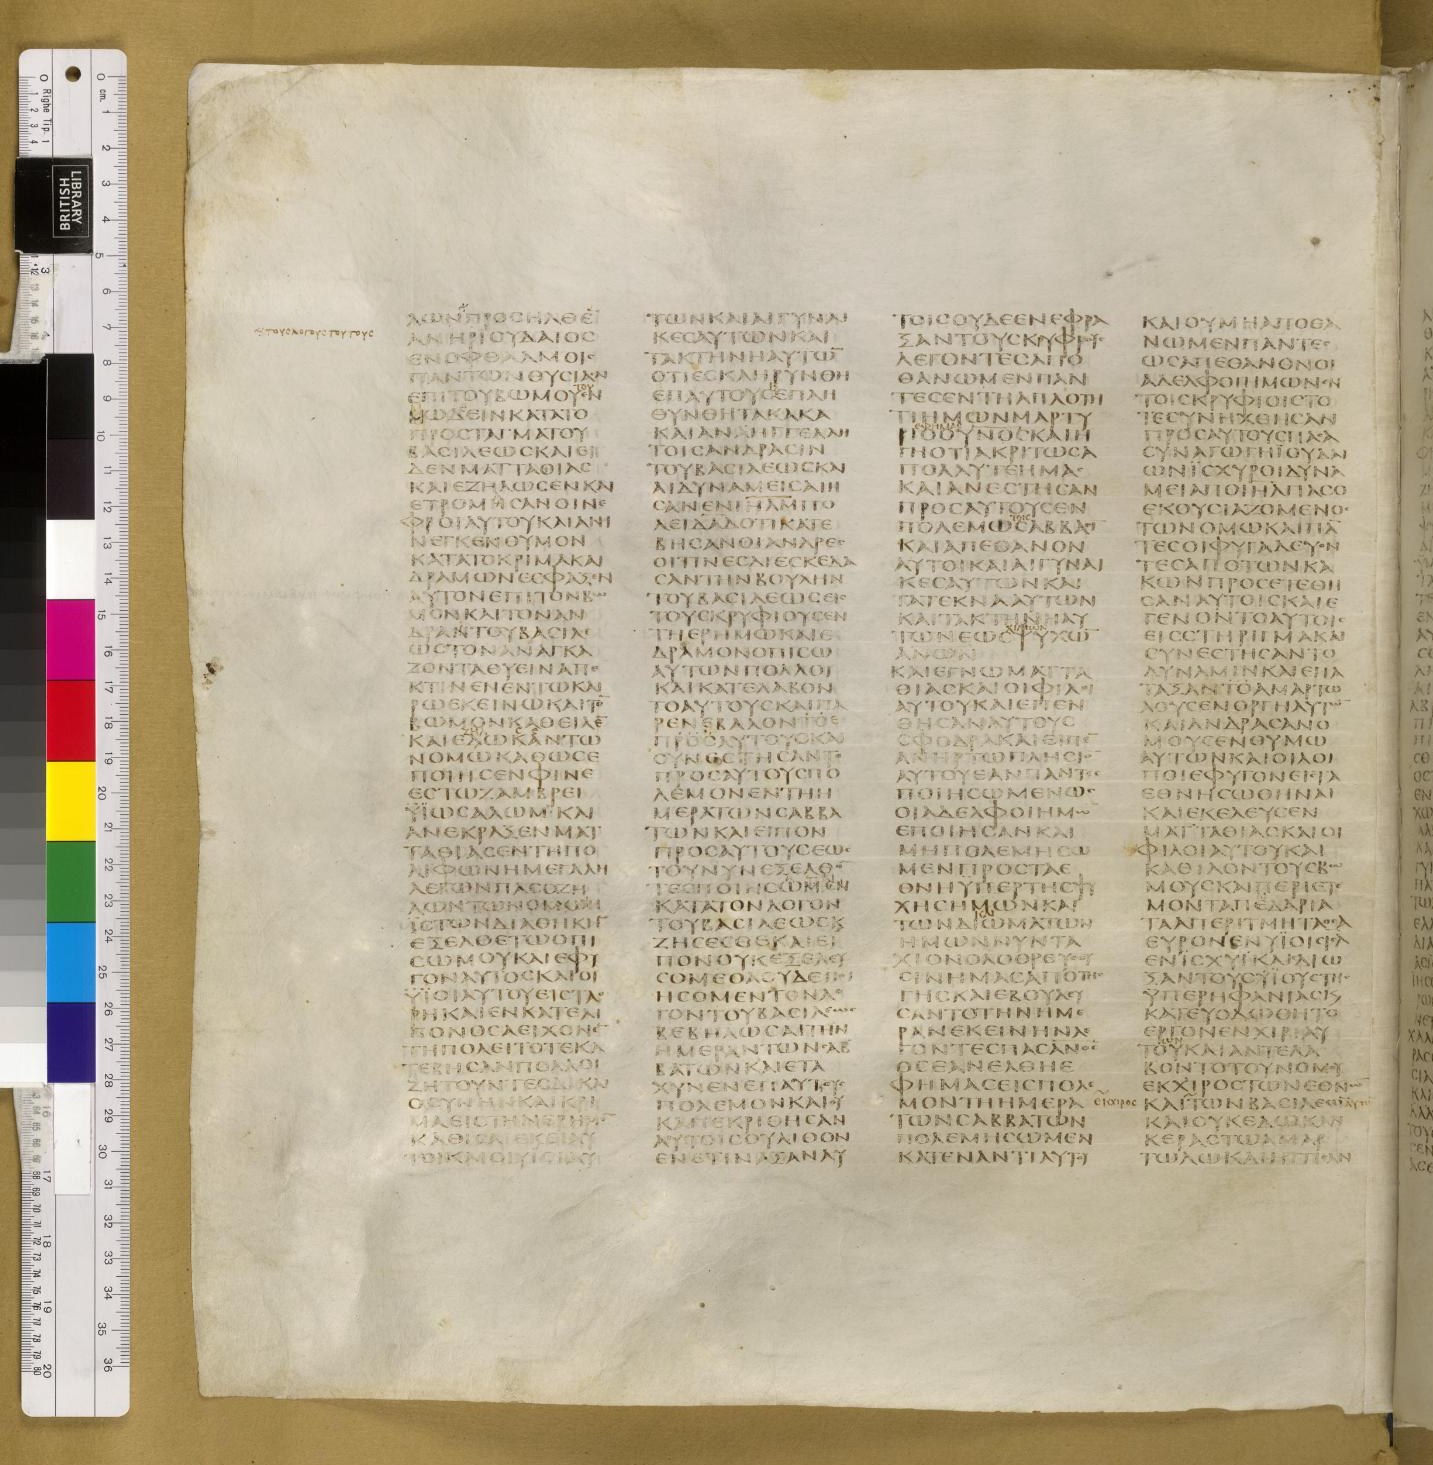 ΛΩΝΠΡΟΣΗΛΘΕ
ΑΝΗΡΙΟΥΔΑΙΟΣ
ΕΝΟΦΘΑΛΜΟΙΣ
ΠΑΝΤΩΝΘΥΣΙΑΝ
ΕΠΙΤΟΥΒΩΜΟΥΕΝ
ΜΩΔΕΙΝΚΑΤΑΤΟ
ΠΡΟΣΤΑΓΜΑΤΟΥ
ΒΑΣΙΛΕΩΣΚΑΙΕΙ
ΔΕΝΜΑΤΤΑΘΙΑΣ
ΚΑΙΕΖΗΛΩΣΕΝΚΑΙ
ΕΤΡΟΜΗΣΑΝΟΙΝΕ
ΦΡΟΙΑΥΤΟΥΚΑΙΑΝΗ
ΝΕΓΚΕΝΘΥΜΟΝ
ΚΑΤΑΤΟΚΡΙΜΑΚΑΙ
ΔΡΑΜΩΝΕΣΦΑΞΕΝ
ΑΥΤΟΝΕΠΙΤΟΝΒΩ
ΜΟΝΚΑΙΤΟΝΑΝ
ΔΡΑΝΤΟΥΒΑΣΙΛΕ
ΩΣΤΟΝΑΝΑΓΚΑ
ΖΟΝΤΑΘΥΕΙΝΑΠΕ
ΚΤΙΝΕΝΕΝΤΩΚΑΙ
ΡΩΕΚΕΙΝΩΚΑΙΤΟ
ΒΩΜΟΝΚΑΘΕΙΛΕ
ΚΑΙΕΖΗΛΩΣΕΝΤΩ
ΝΟΜΩΚΑΘΩΣΕ
ΠΟΙΗΣΕΝΦΙΝΕ
ΕΣΤΩΖΑΜΒΡΕΙ
ΫΪΩΣΑΛΩΜΚΑΙ
ΑΝΕΚΡΑΞΕΝΜΑΤ
ΤΑΘΙΑΣΕΝΤΗΠΟ
ΛΙΦΩΝΗΜΕΓΑΛΗ
ΛΕΓΩΝΠΑΣΟΖΗ
ΛΩΝΤΩΝΟΜΩ
ΙΣΤΩΝΔΙΑΘΗΚΗ
ΕΞΕΛΘΕΤΩΟΠΙ
ΣΩΜΟΥΚΑΙΕΦΥ
ΓΟΝΑΥΤΟΣΚΑΙΟΙ
ΫΪΟΙΑΥΤΟΥΕΙΣΤΑΟ
ΡΗΚΑΙΕΝΚΑΤΕΛΙ
ΠΟΝΟΣΑΕΙΧΟΝΕ
ΤΗΠΟΛΕΙΤΟΤΕΚΑ
ΤΕΒΗΣΑΝΠΟΛΛΟΙ
ΖΗΤΟΥΝΤΕΣΔΙΚΑΙ
ΟΣΥΝΗΝΚΑΙΚΡΙ
ΜΑΕΙΣΤΗΝΕΡΗΜΟ
ΚΑΘΙΣΑΙΕΚΕΙΑΥ
ΤΟΙΚΑΙΟΙΫΙΟΙΑΥ
ΤΩΝΚΑΙΑΙΓΥΝΑΙ
ΚΕΣΑΥΤΩΝΚΑΙ
ΤΑΚΤΗΝΗΑΥΤΩ
ΟΤΙΕΣΚΛΗΡΥΝΘΗ
ΕΠΑΥΤΟΥΣΕΠΛΗ
ΘΥΝΘΗΤΑΚΑΚΑ
ΚΑΙΑΝΗΓΓΕΛΗ
ΤΟΙΣΑΝΔΡΑΣΙΝ
ΤΟΥΒΑΣΙΛΕΩΣΚΑΙ
ΑΙΔΥΝΑΜΕΙΣΑΙΗ
ΣΑΝΕΝΙΗΛΜΠΟ
ΛΕΙΔΑΔΟΤΙΚΑΤΕ
ΒΗΣΑΝΘΙΑΝΔΡΕΣ
ΟΙΤΙΝΕΣΔΙΕΣΚΕΔΑ
ΣΑΝΤΗΝΒΟΥΛΗΝ
ΤΟΥΒΑΣΙΛΕΩΣΕΙΣ
ΤΟΥΣΚΡΥΦΙΟΥΣΕΝ
ΤΗΕΡΗΜΩΚΑΙΕ
ΔΡΑΜΟΝΟΠΙΣΩ
ΑΥΤΩΝΠΟΛΛΟΙ
ΚΑΙΚΑΤΕΛΑΒΟΝ
ΤΟΑΥΤΟΥΣΚΑΙΠΑ
ΡΕΝΕΒΑΛΟΝ
ΠΡΟΣΑΥΤΟΥΣΚΑΙ
ΣΥΝΕΣΤΗΣΑΝΤΟ
ΠΡΟΣΑΥΤΟΥΣΠΟ
ΛΕΜΟΝΕΝΤΗΗ
ΜΕΡΑΤΩΝΣΑΒΒΑ
ΤΩΝΚΑΙΕΙΠΟΝ
ΠΡΟΣΑΥΤΟΥΣΕΩΣ
ΤΟΥΝΥΝΕΞΕΛΘΟ
ΤΕΣΠΟΙΗΣΩΜΕΝ
ΚΑΤΑΤΟΝΛΟΓΟΝ
ΤΟΥΒΑΣΙΛΕΩΣΚ
ΖΗΣΕΣΘΕΚΑΙΕΙ
ΠΟΝΟΥΚΕΞΕΛΕΥ
ΣΟΜΕΘΑΟΥΔΕΠΟΙ
ΗΣΟΜΕΝΤΟΝΛΟ
ΓΟΝΤΟΥΒΑΣΙΛΕΩΣ
ΒΕΒΗΛΩΣΑΙΤΗΝ
ΗΜΕΡΑΝΤΩΝΣΑΒ
ΒΑΤΩΝΚΑΙΕΤΑ
ΧΥΝΕΝΕΠΑΥΤΟΥΣ
ΠΟΛΕΜΟΝΚΑΙΟΥ
ΚΑΠΕΚΡΙΘΗΣΑΝ
ΑΥΤΟΙΣΟΥΛΙΘΟΝ
ΕΝΕΤΙΝΑΞΑΝΑΥ
ΤΟΙΣΟΥΔΕΕΝΕΦΡΑ
ΞΑΝΤΟΥΣΚΡΥΦΟΥΣ
ΛΕΓΟΝΤΕΣΑΠΟ
ΘΑΝΩΜΕΝΠΑΝ
ΤΕΣΕΝΤΗΑΠΛΟΤΗ
ΤΙΗΜΩΝΜΑΡΤΥ
ΡΙΟΟΥΝΟΣΚΑΙΗ
ΓΗΟΤΙΑΚΡΙΤΩΣΑ
ΠΟΛΛΥΤΕΗΜΑΣ
ΚΑΙΑΝΕΣΤΗΣΑΝ
ΠΡΟΣΑΥΤΟΥΣΕΝ
ΠΟΛΕΜΩΣΑΒΒΑΤ
ΚΑΙΑΠΕΘΑΝΟΝ
ΑΥΤΟΙΚΑΙΑΙΓΥΝΑΙ
ΚΕΣΑΥΤΩΝΚΑΙ
ΤΑΤΕΚΝΑΑΥΤΩΝ
ΚΑΙΤΑΚΤΗΝΗΑΥ
ΤΩΝΕΩΣΨΥΧΩ
ΑΝΩΝ
ΚΑΙΕΓΝΩΜΑΤΤΑ
ΘΙΑΣΚΑΙΟΙΦΙΛΟΙ
ΑΥΤΟΥΚΑΙΕΠΕΝ
ΘΗΣΑΝΑΥΤΟΥΣ
ΣΦΟΔΡΑΚΑΙΕΙΠΕ
ΑΝΗΡΤΩΠΛΗΣΙΟ
ΑΥΤΟΥΕΑΝΠΑΝΤΕΣ
ΠΟΙΗΣΩΜΕΝΩΣ
ΟΙΑΔΕΛΦΟΙΗΜΩ
ΕΠΟΙΗΣΑΝΚΑΙ
ΜΗΠΟΛΕΜΗΣΩ
ΜΕΝΠΡΟΣΤΑΕ
ΘΝΗΫΠΕΡΤΗΣΨΥ
ΧΗΣΗΜΩΝΚΑΙ
ΤΩΝΔΙΩΜΑΤΩΝ
ΗΜΩΝΝΥΝΤΑ
ΧΙΟΝΟΛΟΘΡΕΥΣΟΥ
ΣΙΝΗΜΑΣΑΠΟΤΗΣ
ΓΗΣΚΑΙΕΒΟΥΛΕΥ
ΣΑΝΤΟΤΗΝΗΜΕ
ΡΑΝΕΚΕΙΝΗΝΛΕ
ΓΟΝΤΕΣΠΑΣΑΝΟΣ
ΟΣΕΑΝΕΛΘΗΕ
ΦΗΜΑΣΕΙΣΠΟΛΕ
ΜΟΝΤΗΗΜΕΡΑ
ΤΩΝΣΑΒΒΑΤΩΝ
ΠΟΛΕΜΗΣΩΜΕΝ
ΚΑΤΕΝΑΝΤΙΑΥΤΟΥ
ΚΑΙΟΥΜΗΑΠΟΘΑ
ΝΩΜΕΝΠΑΝΤΕΣ
ΩΣΑΠΕΘΑΝΟΝΟΙ
ΑΔΕΛΦΟΙΗΜΩΝΕΝ
ΤΟΙΣΚΡΥΦΙΟΙΣΤΟ
ΤΕΣΥΝΗΧΘΗΣΑΝ
ΠΡΟΣΑΥΤΟΥΣΠΑΣΑ
ΣΥΝΑΓΩΓΗΙΟΥΔΑΙ
ΩΝΪΣΧΥΡΟΙΔΥΝΑ
ΜΕΙΑΠΟΙΗΛΠΑΣΟ
ΕΚΟΥΣΙΑΖΟΜΕΝΟΣ
ΤΩΝΟΜΩΚΑΙΠΑ
ΤΕΣΟΙΦΥΓΑΔΕΥΟΝ
ΤΕΣΑΠΟΤΩΝΚΑ
ΚΩΝΠΡΟΣΕΤΕΘΗ
ΣΑΝΑΥΤΟΙΣΚΑΙΕ
ΓΕΝΟΝΤΟΑΥΤΟΙΣ
ΕΙΣΣΤΗΡΙΓΜΑΚΑΙ
ΣΥΝΕΣΤΗΣΑΝΤΟ
ΔΥΝΑΜΙΝΚΑΙΕΠΑ
ΤΑΞΑΝΤΟΑΜΑΡΤΩ
ΛΟΥΣΕΝΟΡΓΗΑΥΤΩ
ΚΑΙΑΝΔΡΑΣΑΝΟ
ΜΟΥΣΕΝΘΥΜΩ
ΑΥΤΩΝΚΑΙΟΙΛΟΙ
ΠΟΙΕΦΥΓΟΝΕΙΣΤΑ
ΕΘΝΗΣΩΘΗΝΑΙ
ΚΑΙΕΚΕΛΕΥΣΕΝ
ΜΑΤΤΑΘΙΑΣΚΑΙΟΙ
ΦΙΛΟΙΑΥΤΟΥΚΑΙ
ΚΑΘΙΛΟΝΤΟΥΣΒΩ
ΜΟΥΣΚΑΙΠΕΡΙΕΤΕ
ΜΟΝΤΑΠΕΔΑΡΙΑ
ΤΑΑΠΕΡΙΤΜΗΤΑΟΣΑ
ΕΥΡΟΝΕΝΫΪΟΙΣΙΛ
ΕΝΪΣΧΥΪΚΑΙΔΙΩ
ΞΑΝΤΟΥΣΫΪΟΥΣΤΗΣ
ΫΠΕΡΗΦΑΝΙΑΣΚ
ΚΑΤΕΥΟΔΩΘΗΤΟ
ΕΡΓΟΝΕΝΧΙΡΙΑΥ
ΤΟΥΚΑΙΑΝΤΕΛΑ
ΒΟΝΤΟΤΟΥΝΟΜΟΥ
ΕΚΧΙΡΟΣΤΩΝΕΘΝΩ
ΚΑΙΤΩΝΒΑΣΙΛΕΩ
ΚΑΙΟΥΚΕΔΩΚΑΝ
ΚΕΡΑΣΤΩΑΜΑΡ
ΤΩΛΩΚΑΙΗΓΓΙΣΑΝ